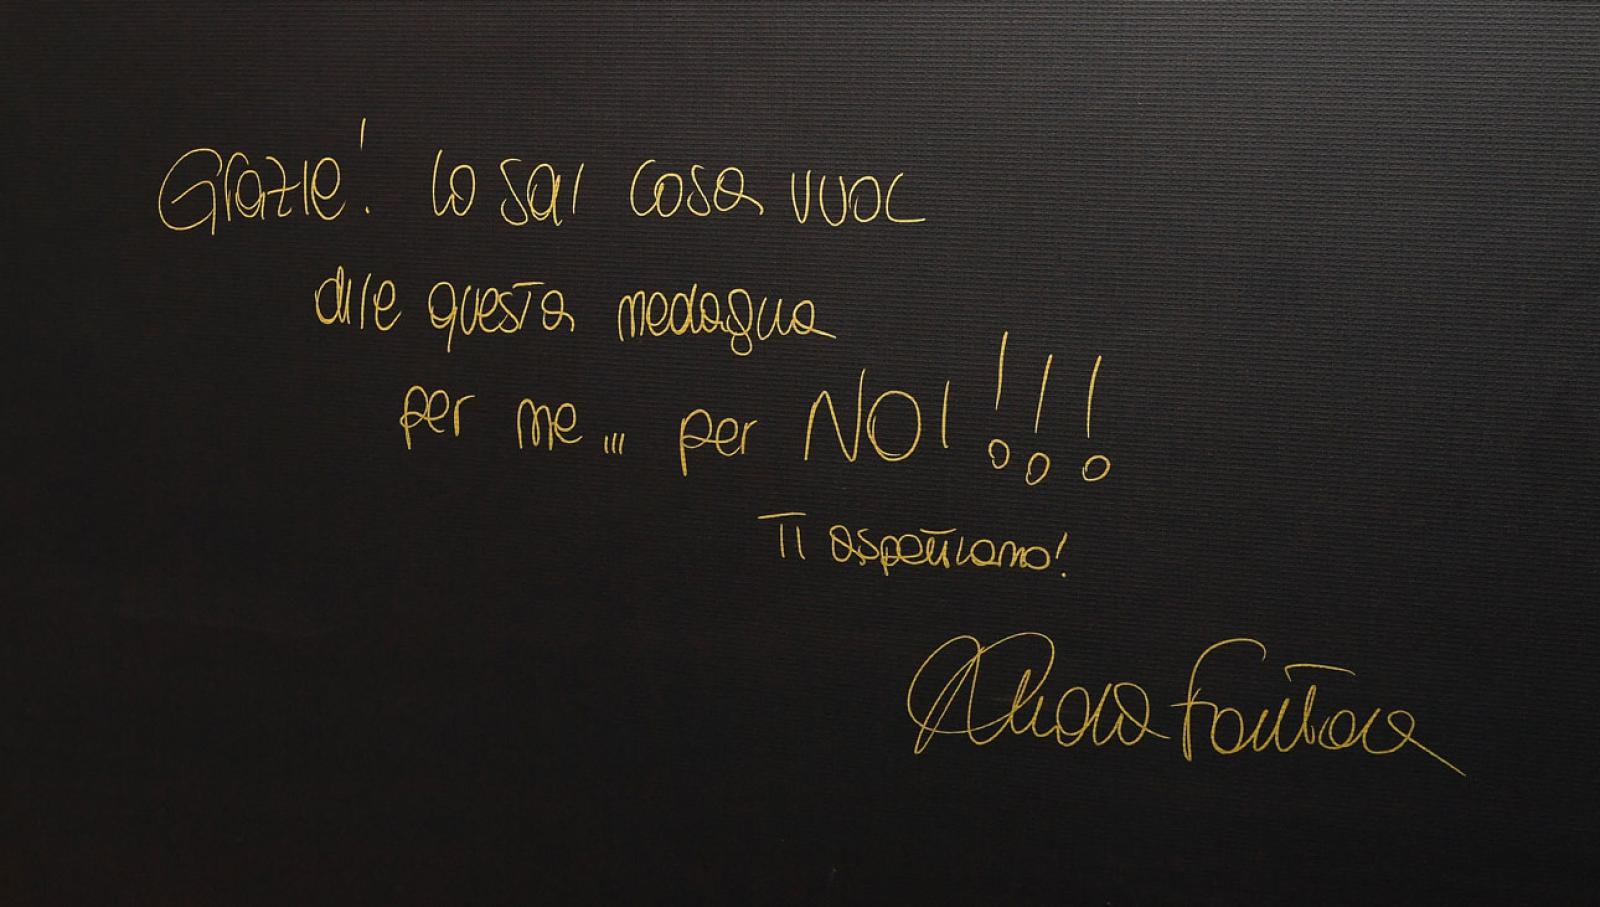 Grazie! Lo sai cosa vuol
dire questa medaglia
per me... per NOI!!!
Ti aspettiamo!
Arianna Fontana